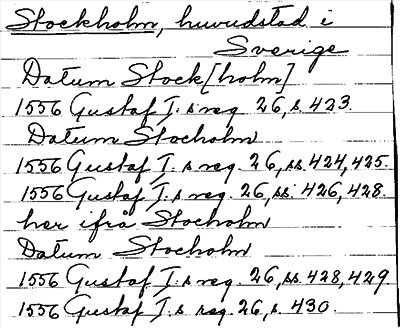 Stockholm, huvudstad i
Sverige
Datum Stock[holm]
1556 Gustaf I. s reg. 26, s. 423.
Datum Stocholm
1556 Gustaf I. s reg. 26, ss. 424, 425.
1556 Gustaf I. s reg. 26, ss. 426, 428.
her ifrå Stocholm
Datum Stocholm
1556 Gustaf I. s reg. 26, ss. 428, 429
1556 Gustaf I. s reg. 26, s. 430.